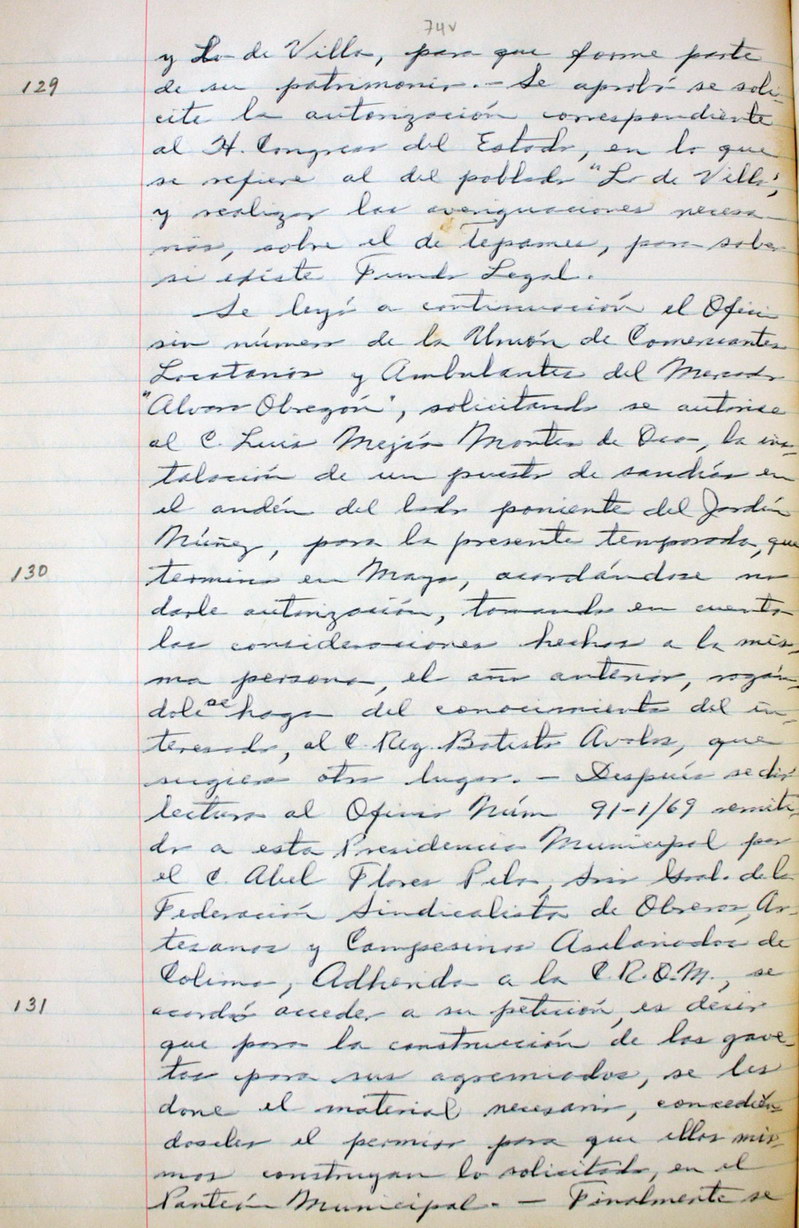 74v
y Lo de Villa, para que forme parte
129 de su patrimonio.- Se aprobó se soli-
cite la autorización correspondiente
al H. Congreso del Estado, en lo que
se refiere al del poblado "Lo de Villa",
y realizar las averiguaciones necesa-
rias, sobre el de Tepames, para saber
si existe Fundo Legal.
Se leyó a continuación el Oficio
sin número de la Unión de Comerciantes
Locatarios y Ambulantes del Mercado
"Alvaro Obregón", solicitando se autorice
al C. Luis Mejía Montes de Oca, la ins-
talación de un puesto de sandías en
el andén del lado poniente del Jardín
Núñez, para la presente temporada, que
130 termina en Mayo, acordándose no
darle autorización, tomando en cuenta
las consideraciones hechas a la mis-
ma persona, el año anterior, rogán-
dole se haga del conocimiento del in-
teresado, al C. Reg. Batista Avalos, que
sugiera otro lugar. - Después se dió
lectura al Oficio Núm 91-1/69 remiti-
do a esta Presidencia Municipal por
el C. Abel Flores Srio Gral. de la
Federación Sindicalista de Obreros, Ar-
tesanos y Campesinos Asalariados de
Colima, Adherida a la C.R.O.M., se
131 acordó acceder a su petición, es decir
que para la construcción de las gave-
tas para sus agremiados, se les
done el material necesario, concedién-
doseles el permiso para que ellos mis-
mos construyan lo solicitado, en el
Panteón Municipal. - Finalmente se